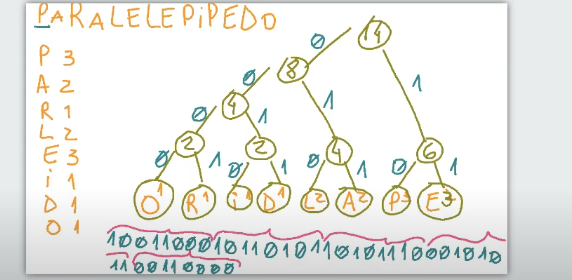 PARALELEPiPEDO
P 3
A 2
R 1
L 2
E 3
i 1
D 1
O 1
14
0
8
0 1 1
4
0 1
2 2 4 6
0 1 0 1 0 1 0 1
O1 R1 i1 D1 L2 A2 P3 E3
100110001011010110101110001010
1100110000